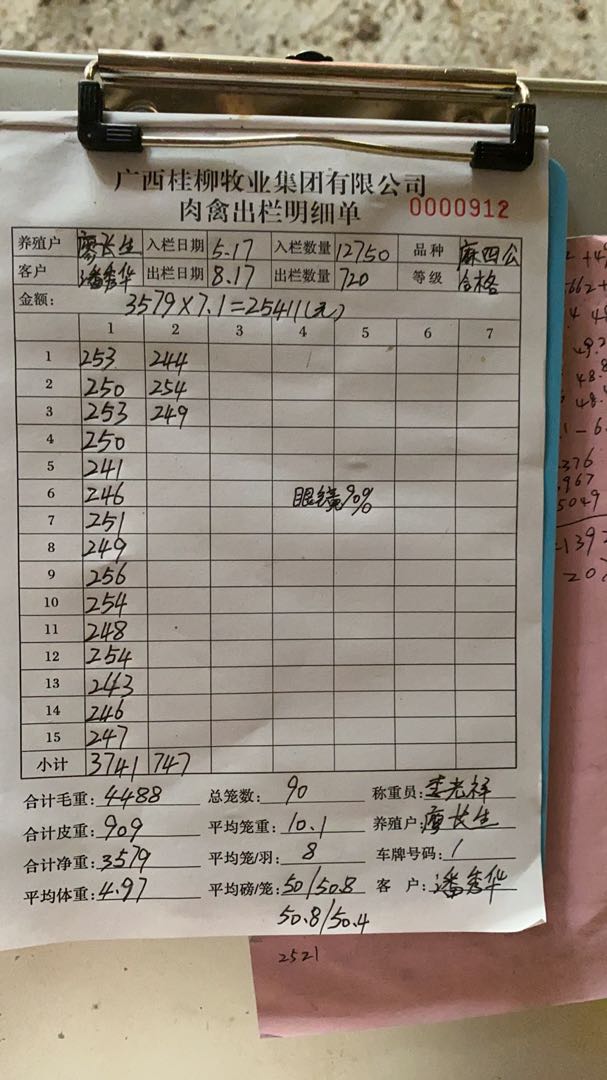 广西桂柳牧业集团有限公司
肉禽出栏明细单 0000912
养殖户 廖长生 入栏日期 5.17 入栏数量 12750 品种 麻四公
客户 潘秀华 出栏日期 8.17 出栏数量 720 等级 合格
金额: 3579×7.1=25411(元)
1 2 3 4 5 6 7
1 253 244
2 250 254
3 253 249
4 250
5 241
6 246 眼镜90%
7 251
8 249
9 256
10 254
11 248
12 254
13 243
14 246
15 247
小计 3741 747
合计毛重: 4488 总笼数: 90 称重员: 李光祥
合计皮重: 909 平均笼重: 10.1 养殖户: 廖长生
合计净重: 3579 平均笼/羽: 8 车牌号码: 1
平均体重: 4.97 平均磅/笼: 50/50.8 客户: 潘秀华
50.8/50.4
2521